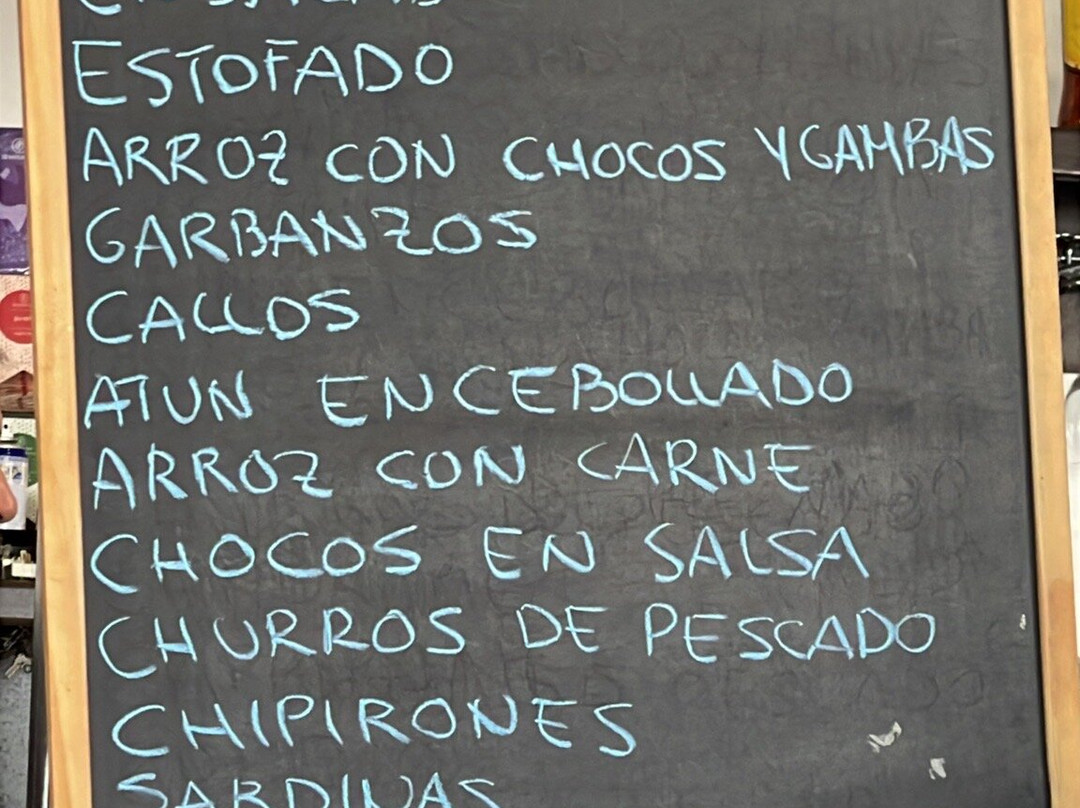 ESTOFADO
ARROZ CON CHOCOS Y GAMBAS
GARBANZOS
CALLOS
ATUN ENCEBOLLADO
ARROZ CON CARNE
CHOCOS EN SALSA
CHURROS DE PESCADO
CHIPIRONES
SARDINAS